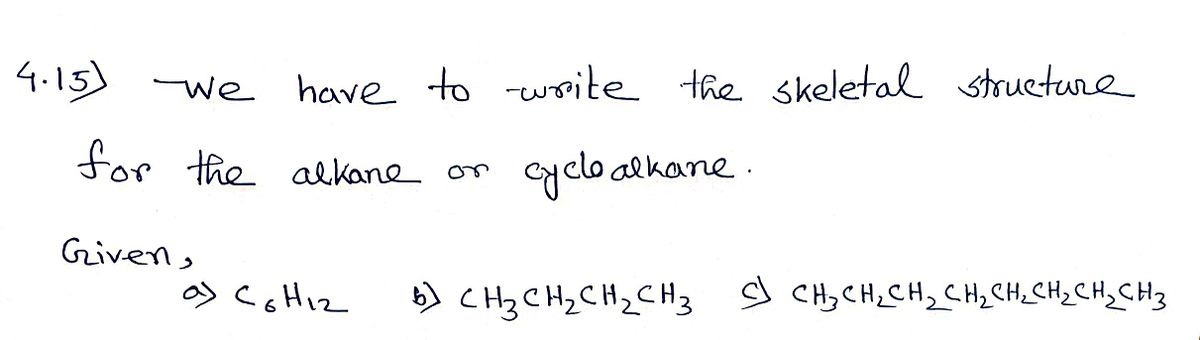 4.15) We have to write the skeletal structure
for the alkane or cycloalkane.
Given,
a) C₆H₁₂ b) CH₃CH₂CH₂CH₃ c) CH₃CH₂CH₂CH₂CH₂CH₂CH₂CH₃